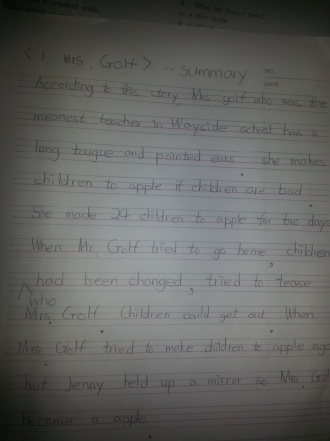 < 1. Mrs. Golf > - Summary
NO.
DATE
According to this story, Mrs golf who was the
meanest teacher in Wayside school has a
long tougue and pointed ears. she makes
children to apple if children are bad.
She made 24 children to apple for two days
When Mr. Golf tried to go home, children
had been changed, tried to tease
who
Mrs. Golf Children could get out. When
Mrs. Golf tried to make children to apple aga
but Jenny held up a mirror so Mrs. Gol
became a apple.